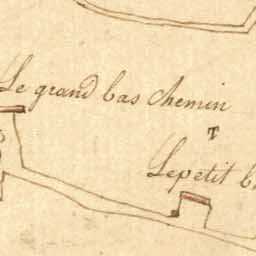 Le grand bas chemin
T
Le petit